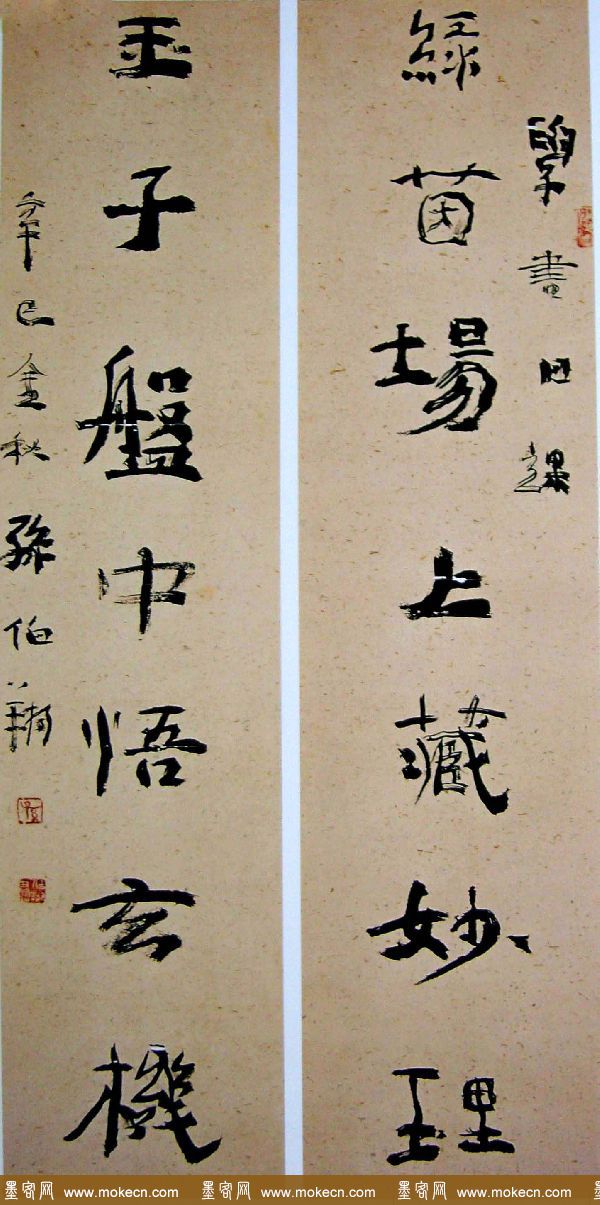 學書日課
綠茵場上藏妙理
玉子盤中悟玄機
辛巳金秋孫伯翔
墨客网 www.mokecn.com 墨客网 www.mokecn.com 墨客网 www.mokecn.com